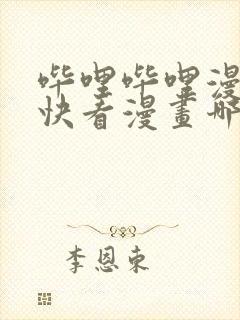 哔哩哔哩漫
快看漫畫哪
李恩东